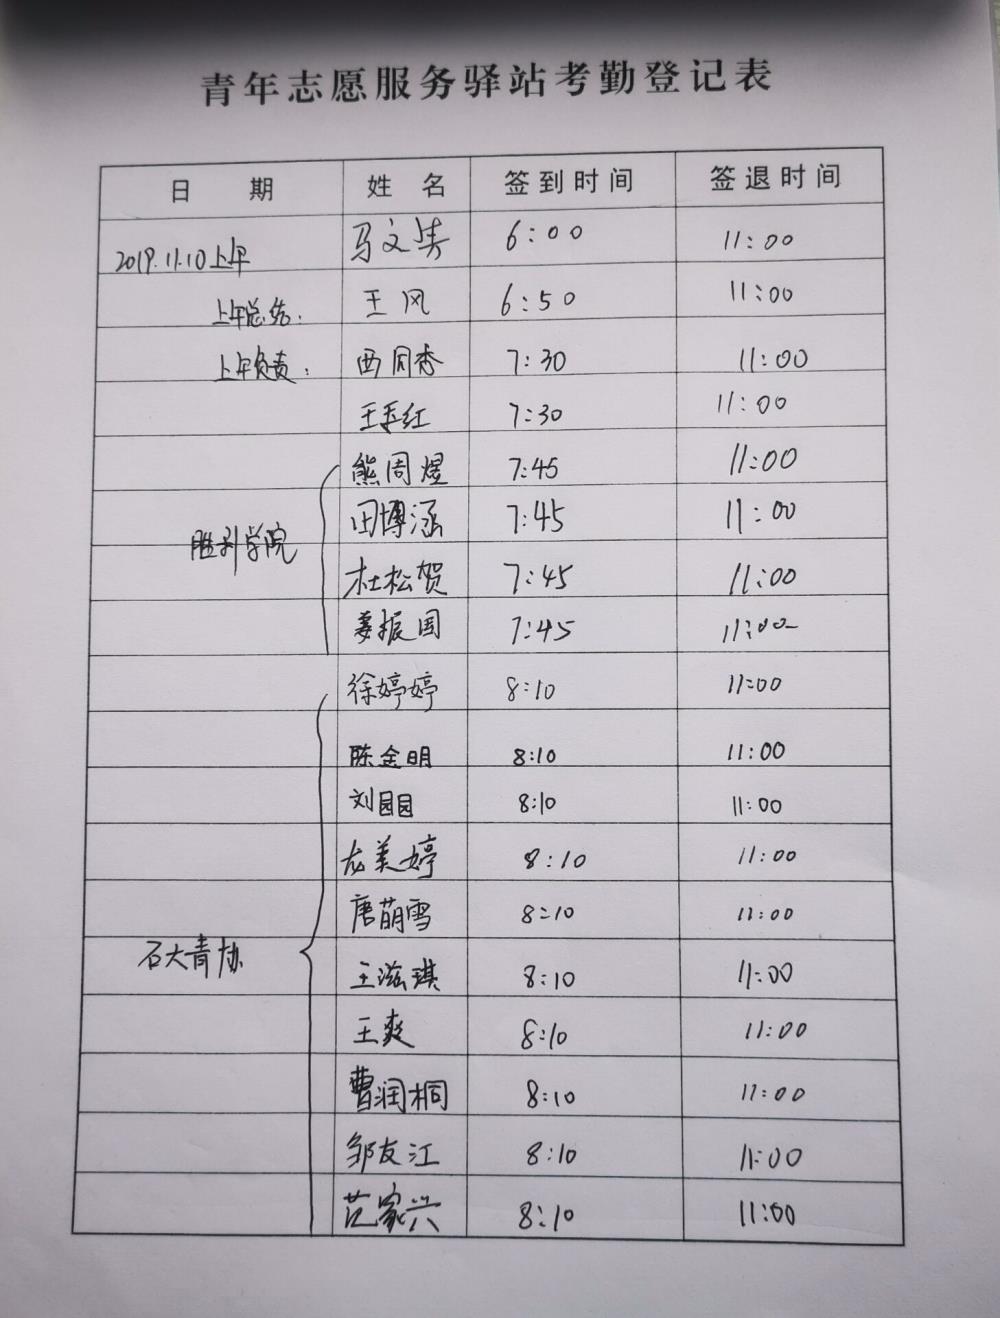 青年志愿服务驿站考勤登记表
日 期 姓 名 签到时间 签退时间
2019.11.10上午 马文隽 6:00 11:00
上午总结: 王风 6:50 11:00
上午负责: 西同香 7:30 11:00
王玉红 7:30 11:00
熊周煜 7:45 11:00
胜利学院 田博涵 7:45 11:00
杜松贺 7:45 11:00
姜振国 7:45 11:00
徐婷婷 8:10 11:00
陈金明 8:10 11:00
刘园园 8:10 11:00
龙美婷 8:10 11:00
唐萌雪 8:10 11:00
石大青协 王滋琪 8:10 11:00
王爽 8:10 11:00
曹润桐 8:10 11:00
邹友江 8:10 11:00
范家兴 8:10 11:00